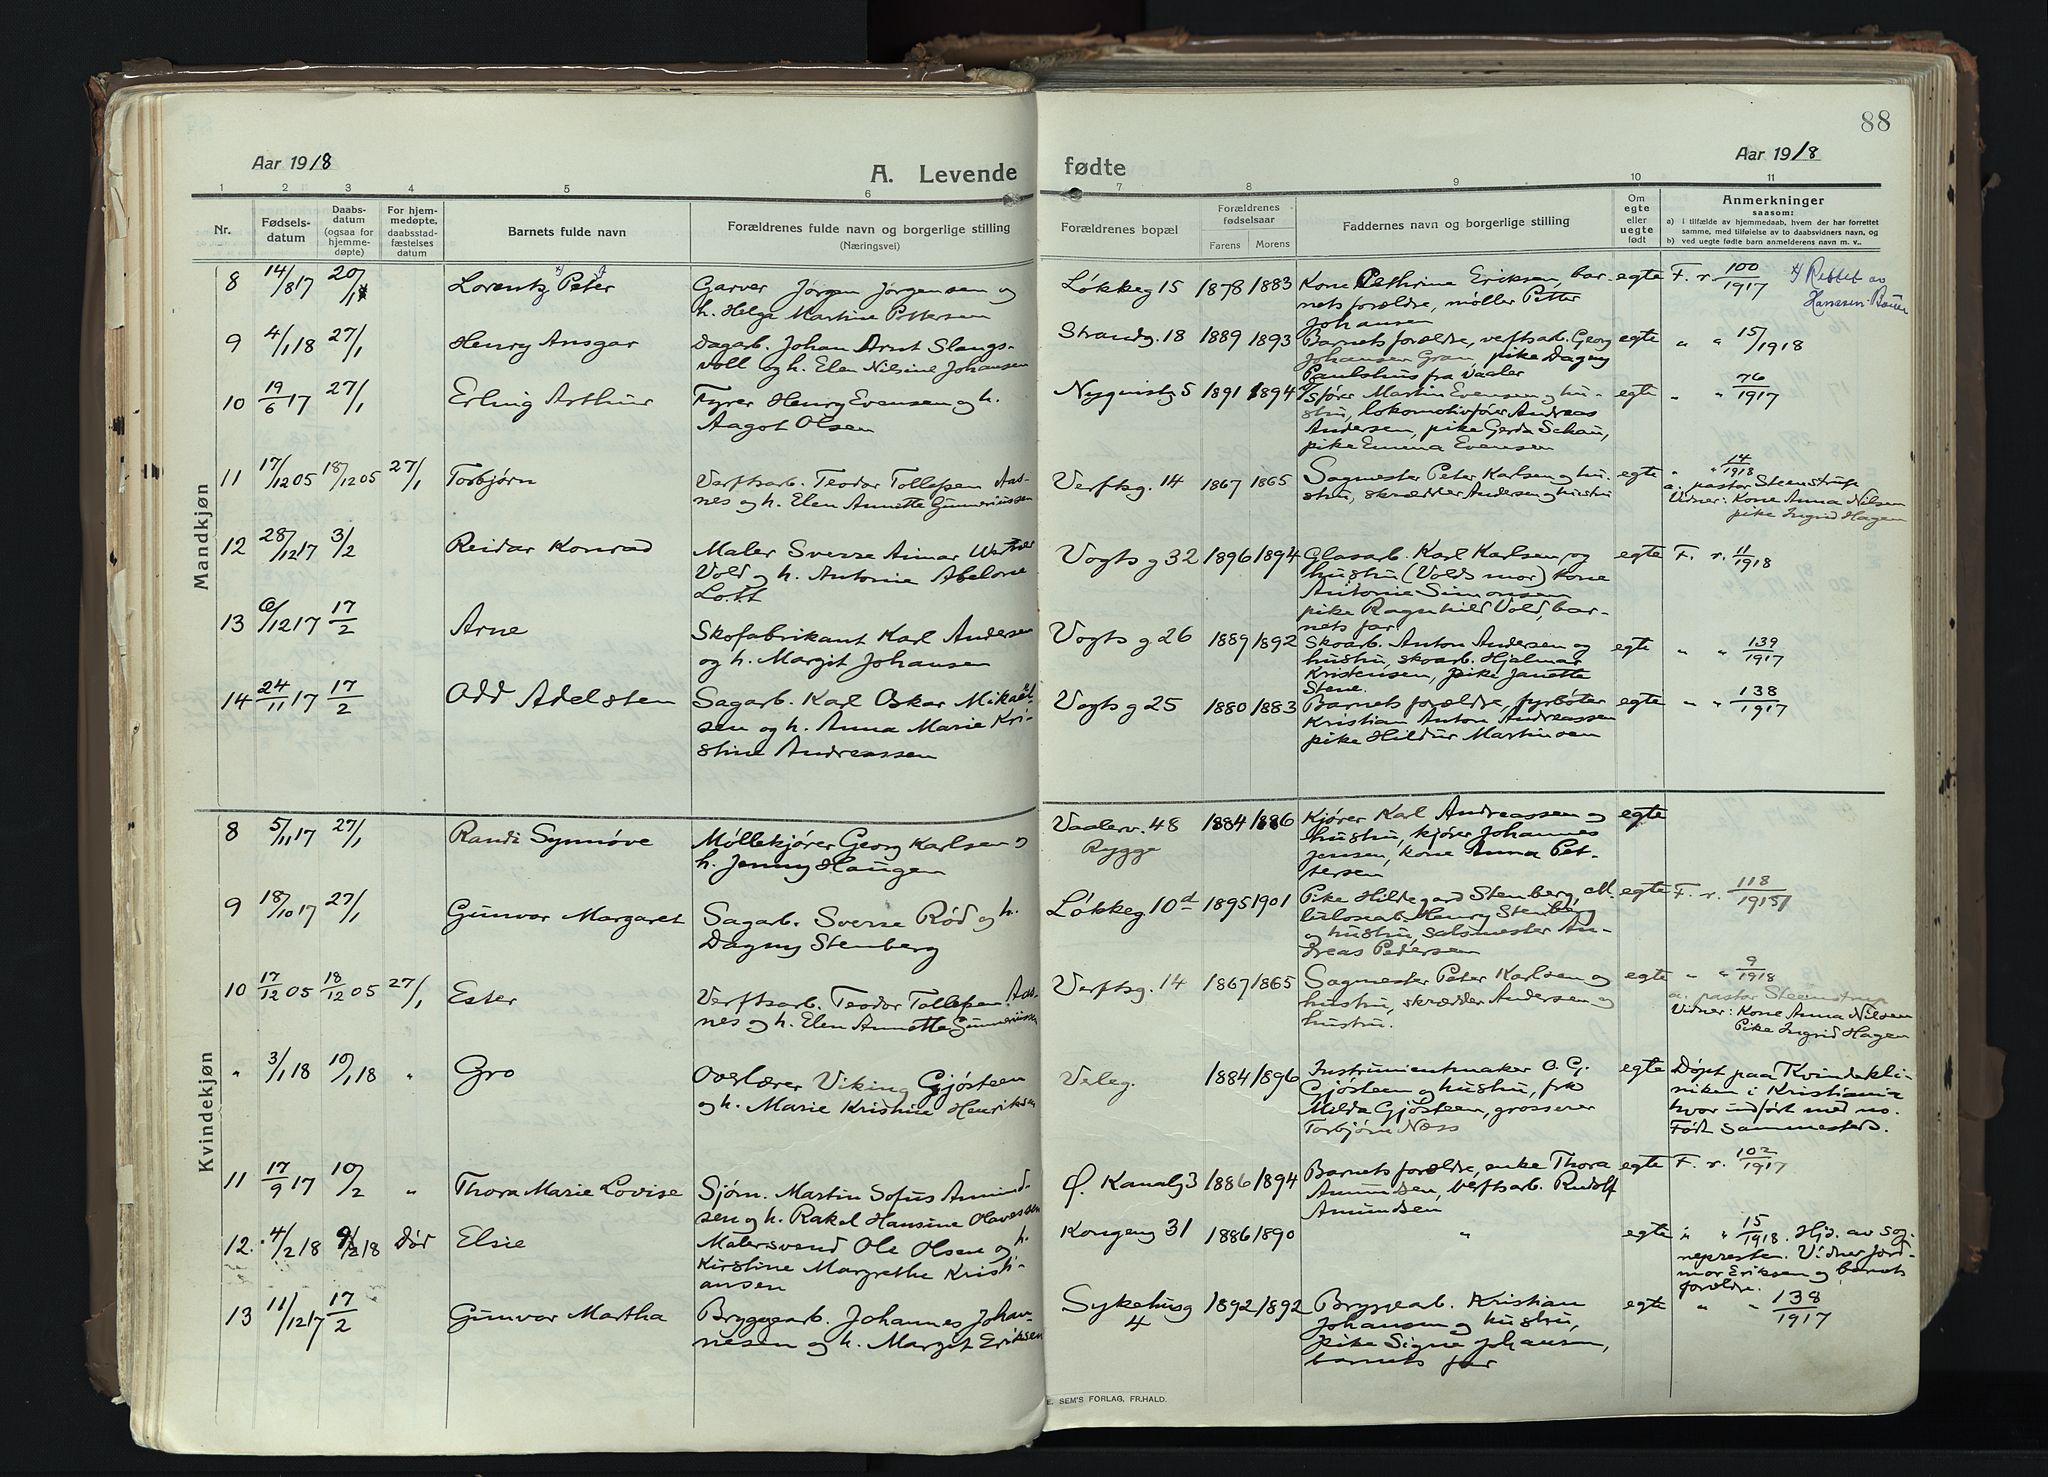 88
Aar 1918
A. Levende
fødte
Aar 1918
1 2 3 4 5 6 7 8 9 10 11
Nr.
Fødsels-
datum
Daabs-
datum
(ogsaa for
hjemme-
døpte)
For hjem-
medøpte,
daabsstad-
fæstelses
datum
Barnets fulde navn
Forældrenes fulde navn og borgerlige stilling
(Næringsvei)
Forældrenes bopæl
Forældrenes
fødselsaar
Farens Morens
Faddernes navn og borgerlige stilling
Om
egte
eller
uegte
født
Anmerkninger
saasom:
a) i tilfælde av hjemmedaab, hvem der har forrettet
samme, med tilføielse av to daabsvidners navn, og
b) ved uegte fødte barn anmelderens navn m. v..
Mandkjøn
8 14/8 17 20/1 Lorentz Peter Garver Jørgen Jørgensen og
h. Helga Martine Pettersen
Løkkeg 15 1878 1883 Kone Pethrine Eriksen, bar-
nets forældre, møller Petter
Johansen
egte F. r. 100/1917 x) Rettet av
9 4/1 18 27/1 Henry Ansgar Dagarb. Johan Arnt Slangs-
voll og h. Elen Nilsine Johansen
Strandg. 18 1889 1893 Barnets forældre, verftsarb. Georg
Johansen Gran, pike Dagny
Paulshus fra Vaaler
egte " " 15/1918
10 19/6 17 27/1 Erling Arthur Fyrer Henry Evensen og h.
Aagot Olsen
Nyquistg 5 1891 1894 Martin Evensen og hu-
stru, lokomotivfører Andreas
Andersen, pike Gerda Schau,
pike Emma Evensen
egte " " 76/1917
11 17/12 05 18/12 05 27/1 Torbjørn Verftsarb. Teodor Tollefsen Aas-
nes og h. Elen Annette Gunneriussen
Verftsg. 14 1867 1865 Sagmester Peter Karlsen og hu-
stru, skrædder Andersen og hustru
egte " " 14/1918
a. pastor Steenstrup
Vidner: Kone Anna Nilsen
pike Ingrid Hagen
12 28/12 17 3/2 Reidar Konrad Maler Sverre Aimar Werner
Vold og h. Antonie Abelone
Lott
Vogts g 32 1896 1894 Glasarb. Karl Karlsen og
hustru (Volds mor) kone
Antonie Simonsen
pike Ragnhild Vold, bar-
nets far
egte F. r. 11/1918
13 6/12 17 17/2 Arne Skofabrikant Karl Andersen
og h. Margit Johansen
Vogts g 26 1889 1892 Skoarb. Anton Andersen og
hustru, skoarb. Hjalmar
Kristensen, pike Janette
Stene.
egte " " 139/1917
14 24/11 17 17/2 Odd Adelsten Sagarb. Karl Oskar Mikael-
sen og h. Anna Marie Kri-
stine Andreassen
Vogts g 25 1880 1883 Barnets forældre, fyrbøter
Kristian Anton Andreassen
pike Hildur Martinsen
egte " " 138/1917
Kvindekjøn
8 5/11 17 27/1 Randi Synnøve Møllekjører Georg Karlsen og
h. Jenny Haugen
Vaalerv. 48
Rygge
1884 1886 Kjører Karl Andreassen og
hustru, kjører Johannes
Jensen, kone Anna Pet-
tersen
egte
9 18/10 17 27/1 Gunvor Margaret Sagarb. Sverre Rød og h.
Dagny Stenberg
Løkkeg. 10d 1895 1901 Pike Hildegard Stenberg, cel-
luloseab. Henry Stenberg
og hustru, salsmester An-
dreas Pedersen
egte F. r. 118/1915
10 17/12 05 18/12 05 27/1 Ester Verftsarb. Teodor Tollefsen Aas-
nes og h. Elen Annette Gunneriussen
Verftsg. 14 1867 1865 Sagmester Peter Karlsen og
hustru, skrædder Andersen og
hustru.
egte " " 9/1918
a. pastor Steenstrup
Vidner: Kone Anna Nilsen
Pike Ingrid Hagen
" 3/1 18 10/1 18 " Gro Overlærer Viking Gjøsteen
og h. Marie Kristine Henriksen
Veleg. 1884 1896 Instrumentmaker O. G.
Gjøsteen og hustru, frk
Milda Gjøsteen, grosserer
Torbjørn Næss
egte Døpt paa Kvindekli-
niken i Kristiania
hvor indført med no.
Født sammesteds.
11 17/9 17 10/2 " Thora Marie Lovise Sjøm. Martin Sofus Amund-
sen og h. Rakel Hansine Olavessen
Ø. Kanalg 3 1886 1894 Barnets forældre, enke Thora
Amundsen, verftsarb. Rudolf
Amundsen
egte F. r. 102/1917
12. 4/2 18 9/2 18 Død Elsie Malersvend Ole Olsen og h.
Kirstine Margrethe Kristi-
ansen
Kongeng 31 1886 1890 " egte " " 15/1918. Hjd. av sog-
nepresten. Vidner Jord-
mor Eriksen og barnets
forældre.
13 11/12 17 17/2 Gunvor Martha Bryggearb. Johannes Johan-
nesen og h. Margit Eriksen
Sykehusg
4
1892 1892 Bryggearb. Kristian
Johansen og hustru,
pike Signe Johansen,
barnets far
egte " " 138/1917
E. SEM'S FORLAG, FR.HALD.